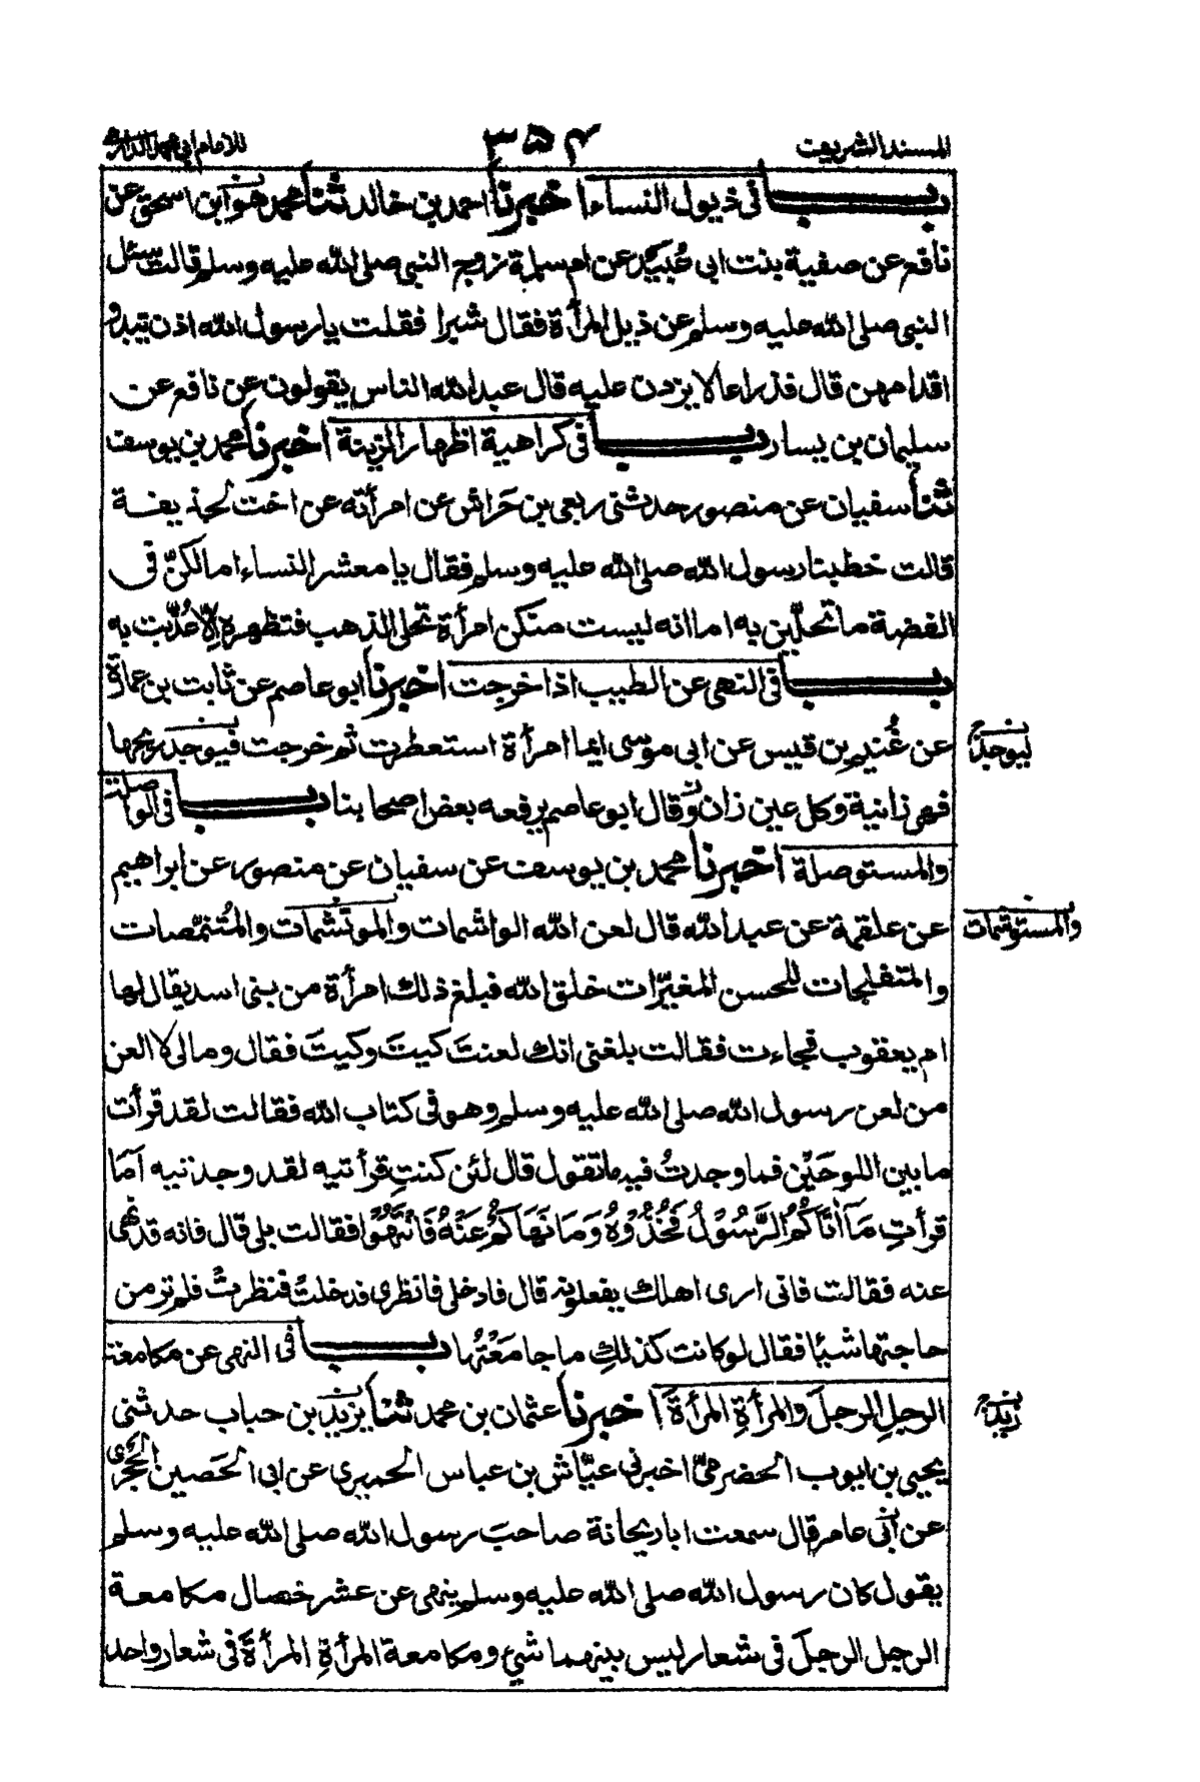 المسند الشريف ۳۵۴ للامام ابی محمد الدارمی
باب فی ذیول النساء اخبرنا احمد بن خالد ثنا محمد هو ابن اسحق عن
نافع عن صفية بنت ابی عُبَيد عن ام سلمة زوج النبی صلی الله عليه وسلم قالت سئل
النبی صلی الله عليه وسلم عن ذيل المرأة فقال شبرا فقلت يا رسول الله اذن تبدو
اقدامهن قال فذراعا لا يزدن عليه قال عبد الله الناس يقولون عن نافع عن
سليمان بن يسار باب فی كراهية اظهار الزينة اخبرنا محمد بن يوسف
ثنا سفيان عن منصور حدثنی ربعی بن حَراش عن امرأته عن اخت لحذيفة
قالت خطبنا رسول الله صلی الله عليه وسلم فقال يا معشر النساء اما لكنّ فی
الفضة ما تحلّين به اما انه ليست منكن امرأة تحلی الذهب فتظهره الّا عُذّبت به
باب فی النهی عن الطيب اذا خرجت اخبرنا ابو عاصم عن ثابت بن عمارة
عن غُنيم بن قيس عن ابی موسی ايما امرأة استعطرت ثم خرجت فيوجد ريحها
ليوجد
فهی زانية وكل عين زان وقال ابو عاصم يرفعه بعض اصحابنا باب فی الواصلة
والمستوصلة اخبرنا محمد بن يوسف عن سفيان عن منصور عن ابراهيم
عن علقمة عن عبد الله قال لعن الله الواشمات والموتشمات والمُتنمّصات
والمستوشمات
والمتفلجات للحسن المغيّرات خلق الله فبلغ ذلك امرأة من بنی اسد يقال لها
ام يعقوب فجاءت فقالت بلغنی انك لعنتَ كيتَ وكيتَ فقال ومالی لا العن
من لعن رسول الله صلی الله عليه وسلم وهو فی كتاب الله فقالت لقد قرأت
ما بين اللوحَيْن فما وجدتُ فيه ما تقول قال لئن كنتِ قرأتيه لقد وجدتيه اَمَا
قرأتِ مَآ اٰتَاكُمُ الرَّسُوْلُ فَخُذُوْهُ وَمَا نَهَاكُمْ عَنْهُ فَانْتَهُوْا فقالت بلی قال فانه قد نهی
عنه فقالت فانی اری اهلك يفعلونه قال فادخلی فانظری فدخلتْ فنظرتْ فلم تر من
حاجتها شيئا فقال لو كانت كذلكِ ما جامَعْتُها باب فی النهی عن مكامعة
الرجلِ الرجلَ والمرأةِ المرأةَ اخبرنا عثمان بن محمد ثنا يزيد بن حباب حدثنی
زيد
يحيی بن ايوب الحضرمیّ اخبرنی عيّاش بن عباس الحميری عن ابی الحَصين الحَجْری
عن ابی عامر قال سمعت ابا ريحانة صاحبَ رسول الله صلی الله عليه وسلم
يقول كان رسول الله صلی الله عليه وسلم ينهی عن عشر خصال مكامعة
الرجل الرجلَ فی شعار ليس بينهما شیء ومكامعة المرأةِ المرأةَ فی شعار واحد